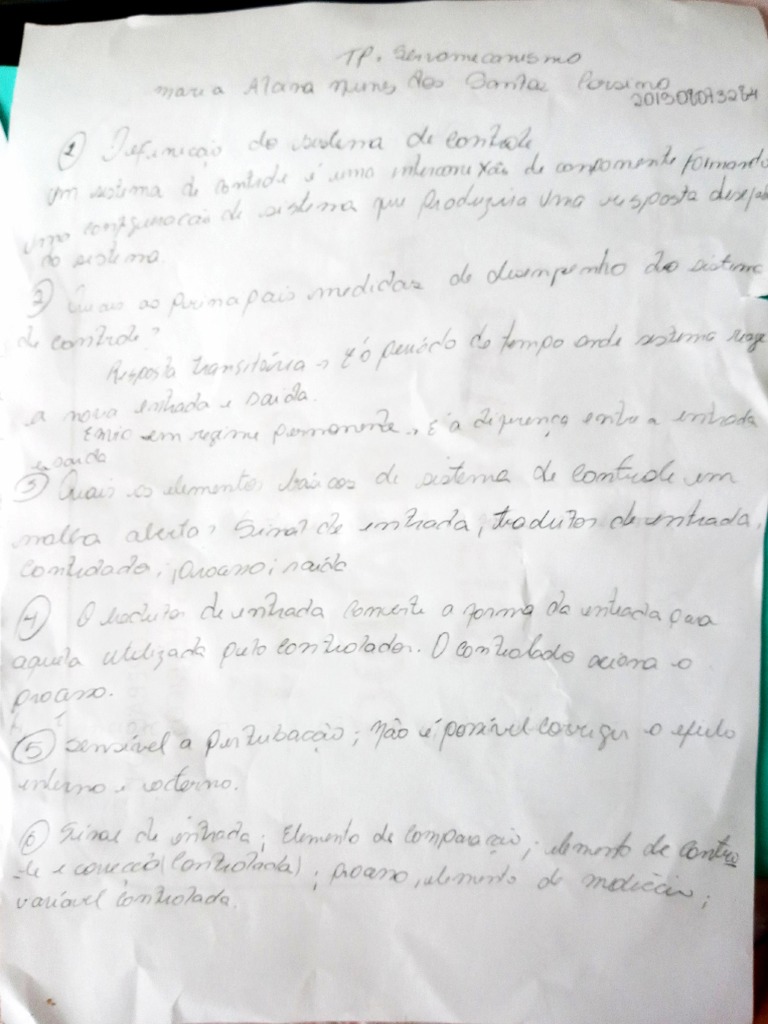 TP. Servomecanismo
Maria Alana Nunes dos Santos
201308073284
① Definição do sistema de controle
um sistema de controle é uma interconexão de componente formando
uma configuração de sistema que produzira uma resposta desejada
do sistema.
② Quais as principais medidas de desempenho do sistema
de controle?
Resposta transitória → é o período de tempo onde sistema reage
a nova entrada e saida.
Erro em regime permanente → é a diferença entre a entrada
e saida.
③ Quais os elementos básicos de sistema de controle em
malha aberta? Sinal de entrada, tradutor de entrada,
controlador; processo; saída
④ O tradutor de entrada converte a forma da entrada para
aquela utilizada pelo controlador. O controlado aciona o
processo.
⑤ Sensível a perturbação; não é possível corrigir o efeito
interno e externo.
⑥ Sinal de entrada; Elemento de comparação; elemento de contro
-le e correção (controlada); processo, elemento de medição;
variável controlada.